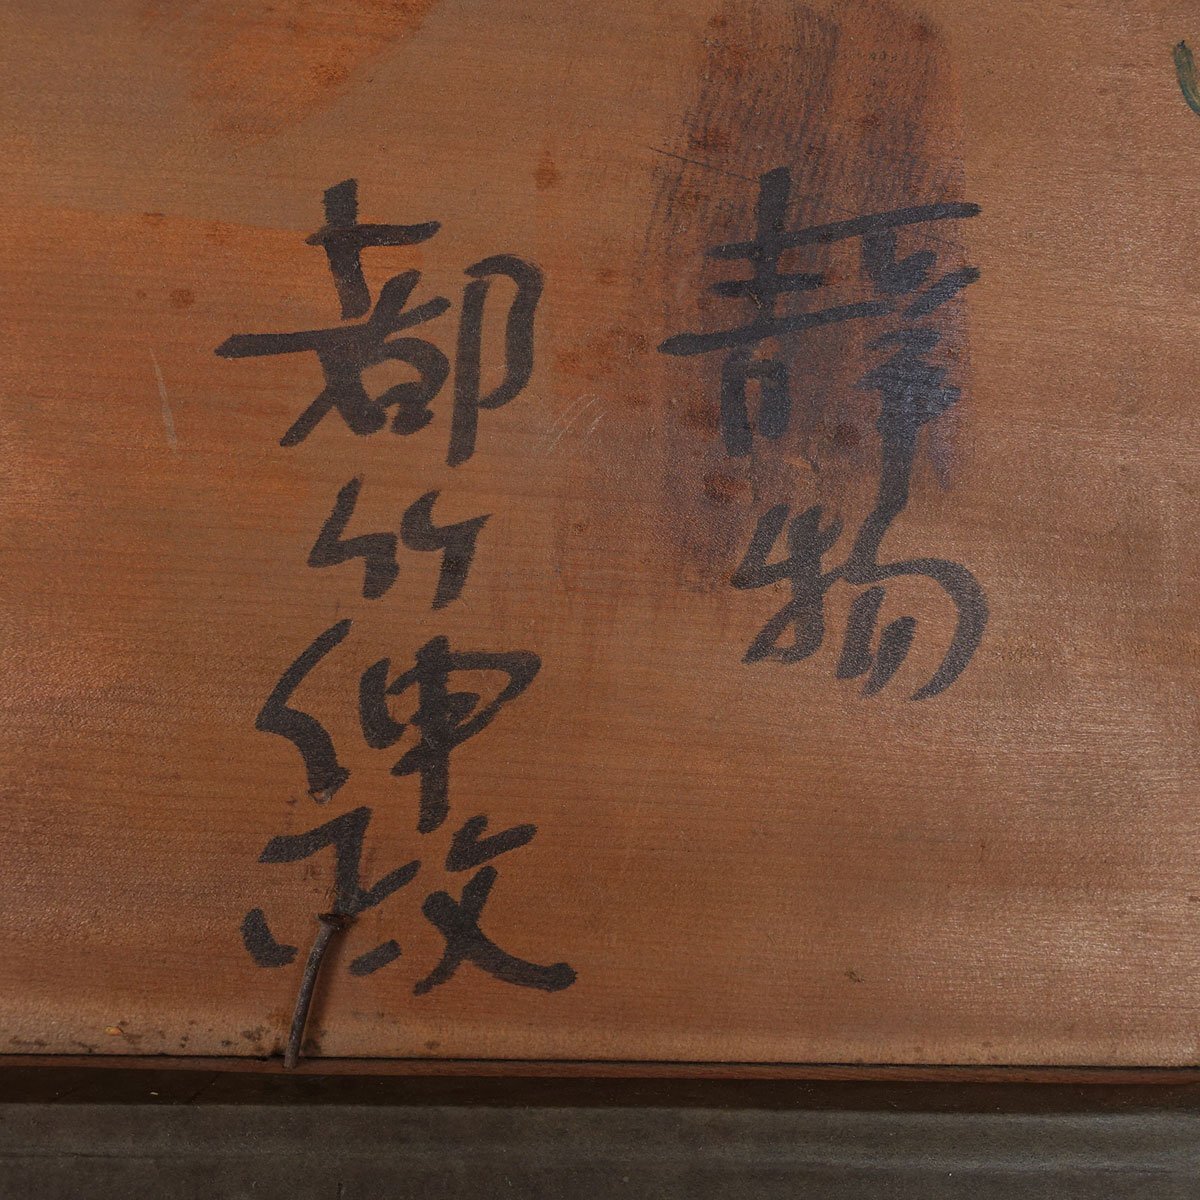 靜物
都竹伸政